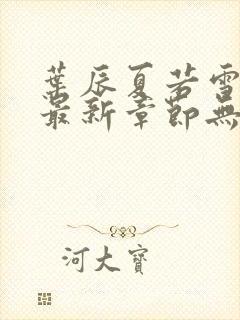 葉辰夏若雪
最新章節無
河大寶